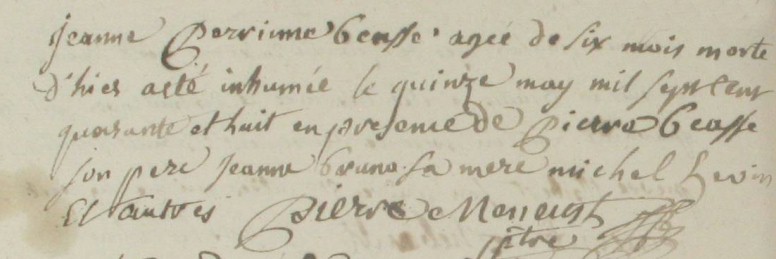 jeanne Perrinne beasse agée de six mois morte
d'hier a eté inhumée le quinze may mil sept cent
quarante et huit en presence de Pierre beasse
son pere jeanne brune sa mere michel
Et autres Pierre Meneust
ptre